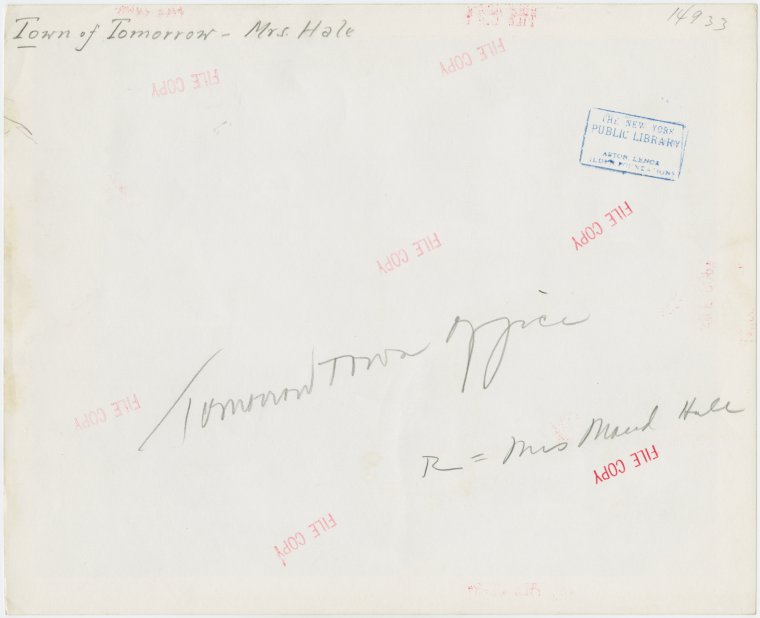 Town of Tomorrow - Mrs. Hale
14933
FILE COPY
FILE COPY
FILE COPY
THE NEW YORK
PUBLIC LIBRARY
ASTOR, LENOX
TILDEN FOUNDATIONS
FILE COPY
FILE COPY
Tomorrow Town Office
FILE COPY
R = Mrs Maud Hale
FILE COPY
FILE COPY